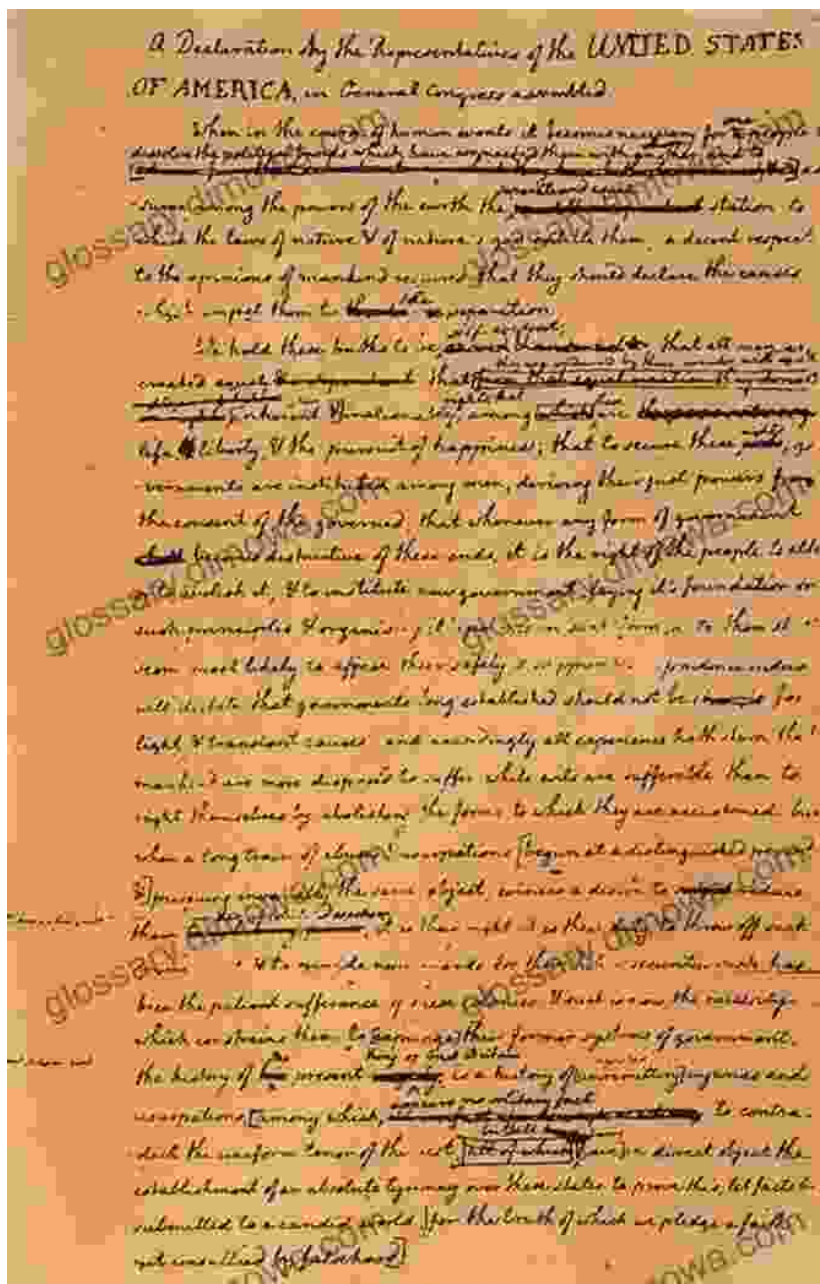 A Declaration by the Representatives of the UNITED STATES
OF AMERICA, in General Congress assembled.
When in the course of human events it becomes necessary for
one
people
dissolve the political bands which have connected them with another, and to
as
separate and equal
-sume among the powers of the earth the station to
which the laws of nature & of nature's god entitle them, a decent respect
to the opinions of mankind requires that they should declare the causes
which impel them to
the
separation.
self-evident;
We hold these truths to be that all men are
created equal that
rights; that
inherent & inalienable among are
life & liberty, & the pursuit of happiness; that to secure these
rights
, go
vernments are instituted among men, deriving their just powers from
the consent of the governed; that whenever any form of government
becomes destructive of these ends, it is the right of the people to alter
or to abolish it, & to institute new government, laying it's foundation on
such principles & organising it's powers in such form, as to them shall
seem most likely to effect their safety & happiness. prudence indeed
will dictate that governments long established should not be changed for
light & transient causes: and accordingly all experience hath shewn that
mankind are more disposed to suffer while evils are sufferable, than to
right themselves by abolishing the forms to which they are accustomed. but
when a long train of abuses & usurpations [begun at a distinguished period
&] pursuing invariably the same object, evinces a design to reduce
under absolute Despotism
them , it is their right, it is their duty to throw off such
& to provide new guards for their future security. such has
been the patient sufferance of these colonies; & such is now the necessity
which constrains them to [expunge] their former systems of government.
the
king of Great Britain
the history of present is a history of [unremitting] injuries and
usurpations, [among which,
appears no solitary fact
to contra-
dict the uniform tenor of the rest, [all of which] in direct object the
establishment of an absolute tyranny over these states. to prove this, let facts be
submitted to a candid world, [for the truth of which we pledge a faith
yet unsullied by falsehood]
glossary.dimowa.com
glossary.dimowa.com
glossary.dimowa.com